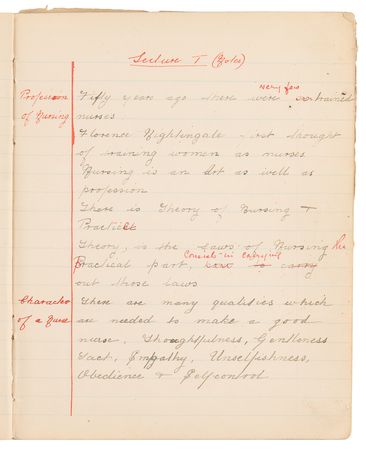 Lecture I (Notes)
very few
Profession Fifty years ago there were no trained
of Nursing nurses.
Florence Nightingale - 1st thought
of training women as nurses.
Nursing is an Art as well as
profession
There is Theory of Nursing &
Practice
Theory, is the Laws of Nursing the
Consists in carrying
Practical part, how to carry
out those laws
Character There are many qualities which
of a Nurse are needed to make a good
nurse, Thoughtfulness, Gentleness
Tact, Sympathy, Unselfishness,
Obedience & Selfcontrol